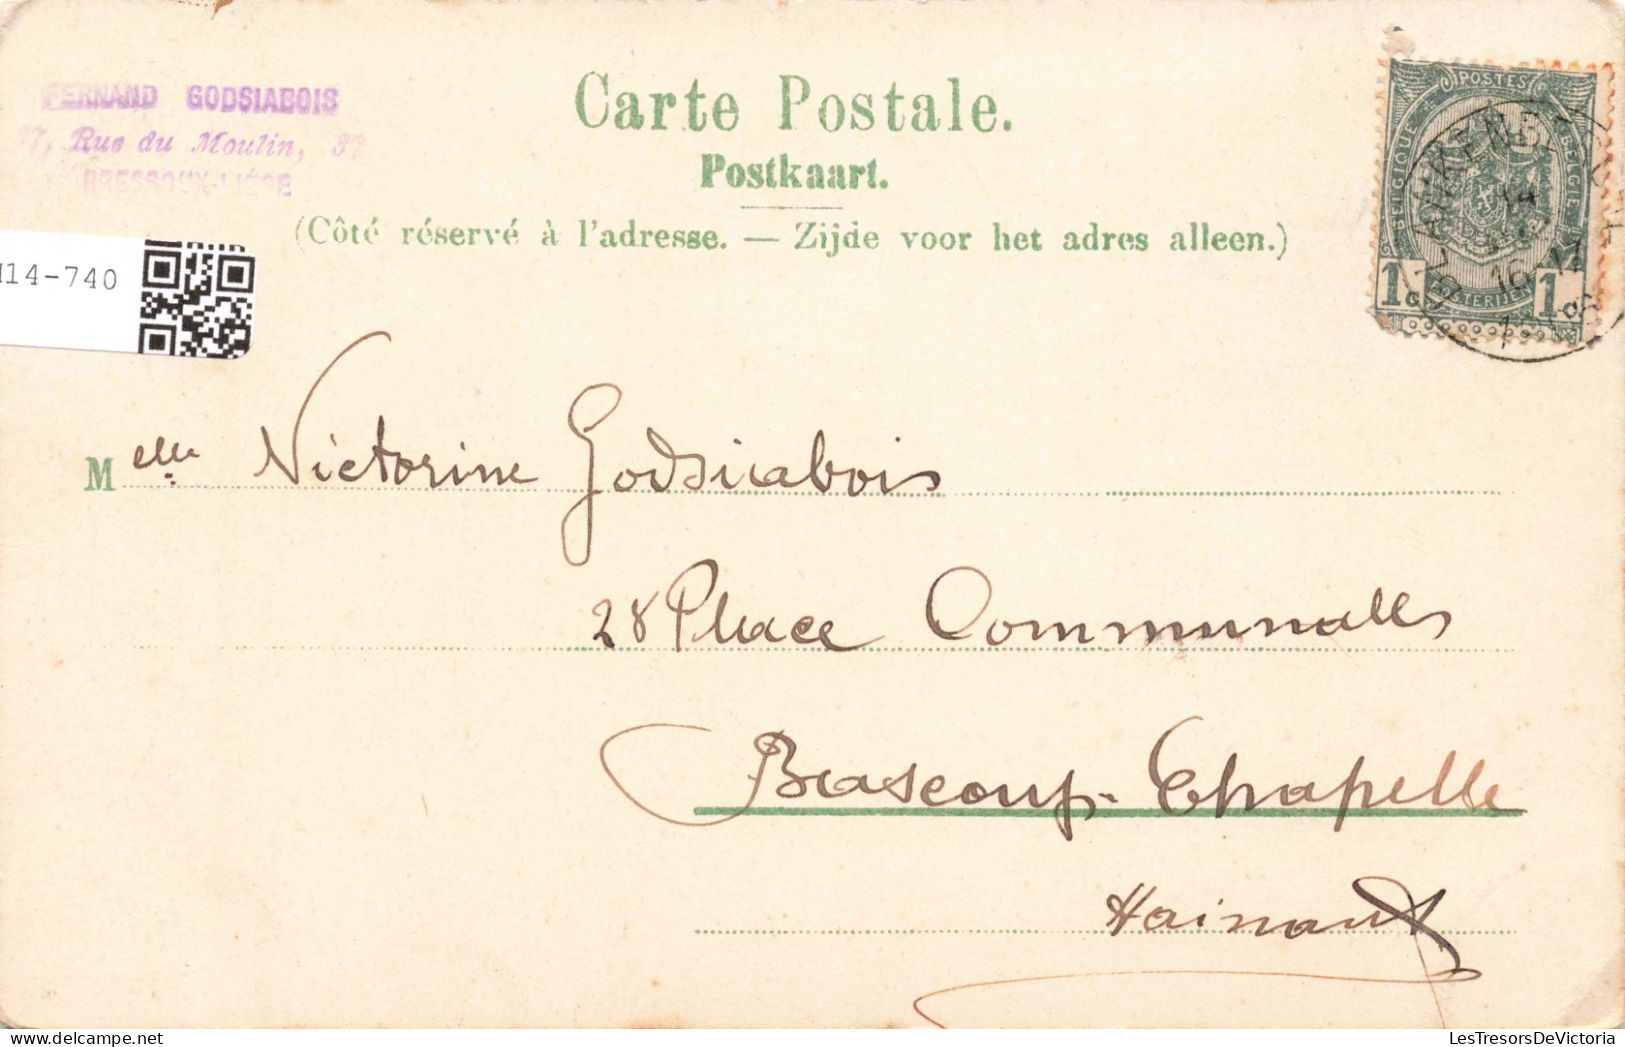 FERNAND GODSIABOIS
37, Rue du Moulin, 37
BRESSOUX-LIÈGE
Carte Postale.
Postkaart.
(Côté réservé à l'adresse. — Zijde voor het adres alleen.)
POSTES
BELGIQUE
BELGIE
1c
POSTERIJEN
1c
14-740
Melle Victorine Godsiabois
28 Place Communalle
Bascoup-Chapelle
Hainaut
LesTresorsDeVictoria